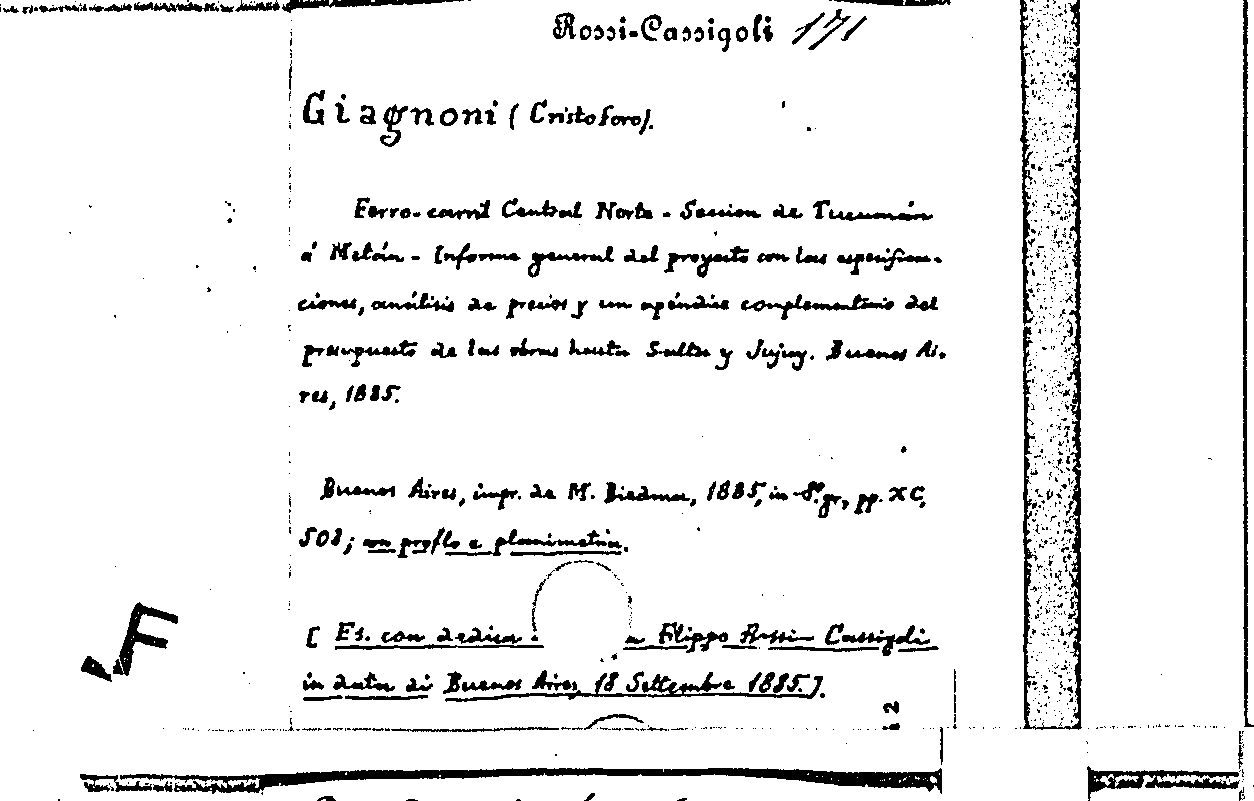 Rossi-Cassigoli 171
Giagnoni (Cristoforo).
Ferro-carril Central Norte - Seccion de Tucumán
á Metán - Informe general del proyecto con las especifica-
ciones, análisis de precios y un apéndice complementario del
presupuesto de las obras hasta Salta y Jujuy. Buenos Ai-
res, 1885.
Buenos Aires, impr. de M. Biedma, 1885, in-8º gr., pp. XC,
508; con profilo e planimetria.
[ Es. con dedica a Filippo Rossi Cassigoli
in data di Buenos Aires, 18 Settembre 1885.].
F